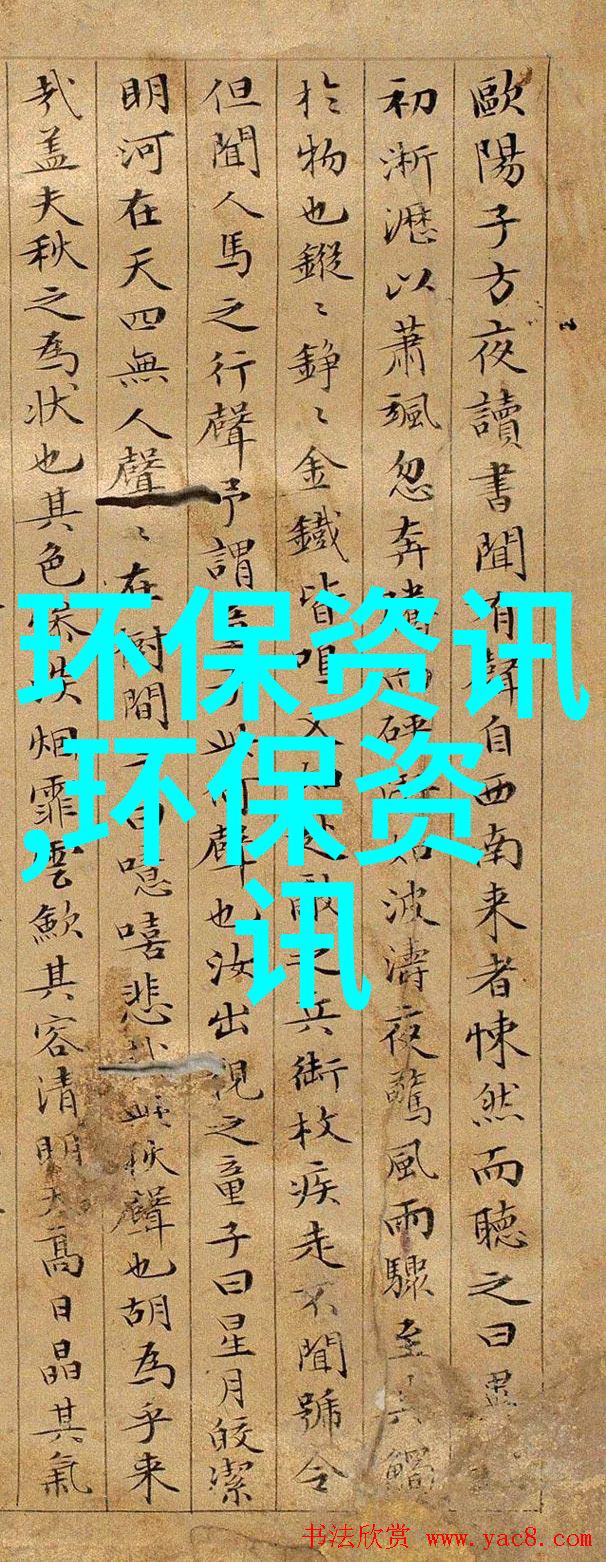 歐陽子方夜讀書聞有聲自西南来者悚然而聽之曰異
初淅瀝以蕭颯忽奔而砰如波濤夜驚風雨驟至其觸
扵物也鏦〻錚〻金鐵皆鳴又敵之兵銜枚疾走不聞號令
但聞人馬之行聲予謂此何聲也汝出視之童子曰星月皎潔
明河在天四無人聲〻在樹間曰噫嘻悲此秋聲也胡為乎来
哉盖夫秋之為狀也其色慘淡烟霏雲歛其容清明天高日晶其氣
环保资讯
,环保资
讯
书法欣赏 www.yac8.com